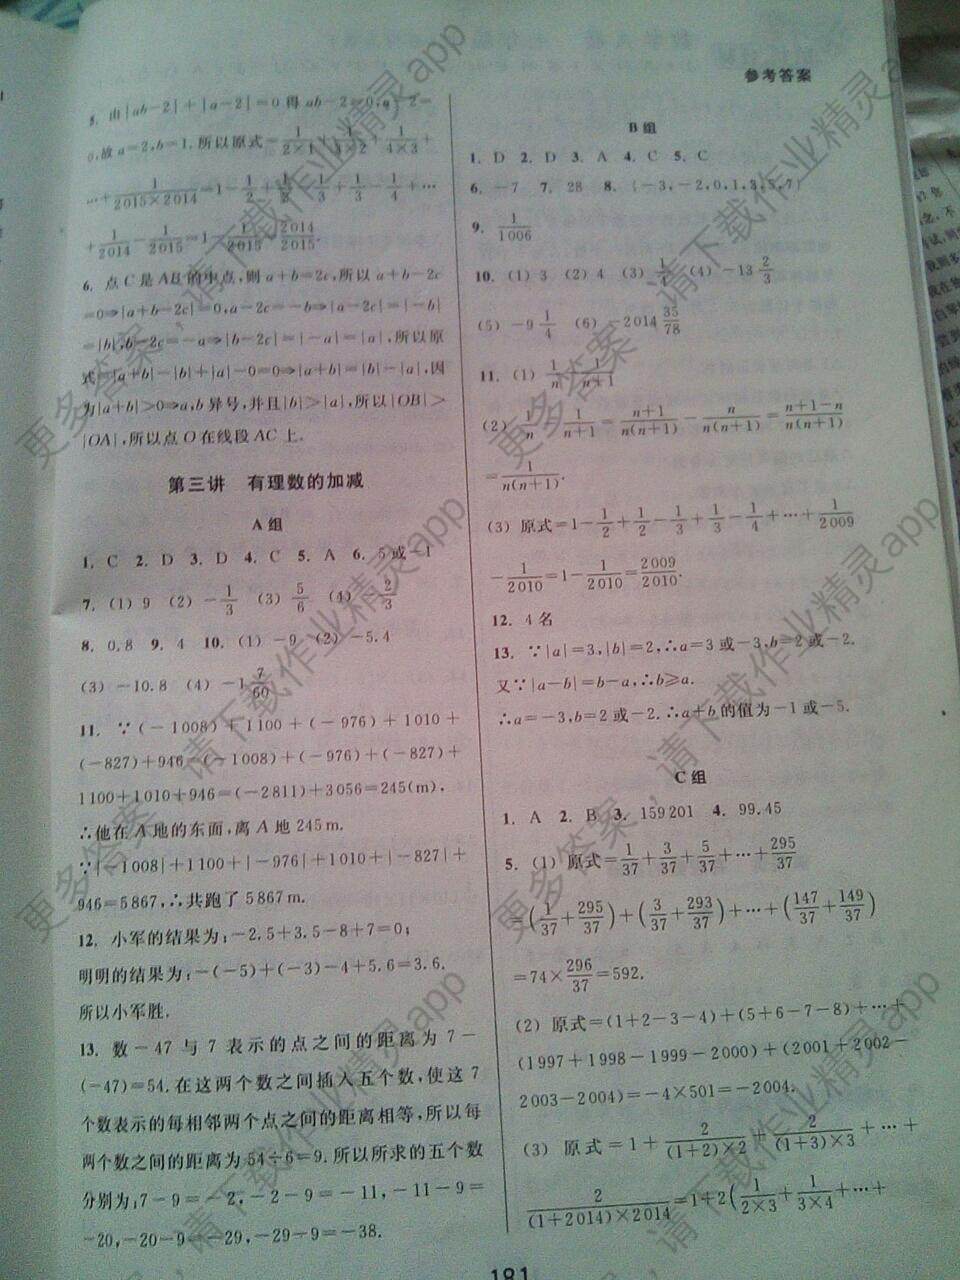 参考答案
5. 由|ab-2|+|a-2|=0得ab-2=0,a-2=
0,故a=2,b=1.所以原式=1/(2×1)+1/(3×2)+1/(4×3)+
…+1/(2015×2014)=1-1/2+1/2-1/3+1/3-1/4+…
+1/2014-1/2015=1-1/2015=2014/2015.
6. 点C是AB的中点,则a+b=2c,所以a+b-2c
=0⇒|a+b-2c|=0,a-2c=-b⇒|a-2c|=|-b|
=|b|,b-2c=-a⇒|b-2c|=|-a|=|a|,所以原
式=|a+b|-|b|+|a|-0=0⇒|a+b|=|b|-|a|,因
为|a+b|>0⇒a,b异号,并且|b|>|a|,所以|OB|>
|OA|,所以点O在线段AC上.
第三讲 有理数的加减
A组
1. C 2. D 3. D 4. C 5. A 6. 5或-1
7. (1) 9 (2) -1/3 (3) 5/6 (4) 2/3
8. 0.8 9. 4 10. (1) -9 (2) -5.4
(3) -10.8 (4) -1 7/60
11. ∵(-1008)+1100+(-976)+1010+
(-827)+946=(-1008)+(-976)+(-827)+
1100+1010+946=(-2811)+3056=245(m),
∴他在A地的东面,离A地245m.
∵|-1008|+1100+|-976|+1010+|-827|+
946=5867,∴共跑了5867m.
12. 小军的结果为:-2.5+3.5-8+7=0;
明明的结果为:-(-5)+(-3)-4+5.6=3.6.
所以小军胜.
13. 数-47与7表示的点之间的距离为7-
(-47)=54.在这两个数之间插入五个数,使这7
个数表示的每相邻两个点之间的距离相等,所以每
两个数之间的距离为54÷6=9.所以所求的五个数
分别为:7-9=-2,-2-9=-11,-11-9=
-20,-20-9=-29,-29-9=-38.
B组
1. D 2. D 3. A 4. C 5. C
6. -7 7. 28 8. {-3,-2,0,1,3,5,7}
9. 1/1006
10. (1) 3 (2) 4 (3) 1/4 (4) -13 2/3
(5) -9 1/4 (6) -2014 35/78
11. (1) 1/n-1/(n+1)
(2) 1/n-1/(n+1)=(n+1)/(n(n+1))-n/(n(n+1))=(n+1-n)/(n(n+1))
=1/(n(n+1)).
(3) 原式=1-1/2+1/2-1/3+1/3-1/4+…+1/2009
-1/2010=1-1/2010=2009/2010.
12. 4名
13. ∵|a|=3,|b|=2,∴a=3或-3,b=2或-2.
又∵|a-b|=b-a,∴b≥a.
∴a=-3,b=2或-2.∴a+b的值为-1或-5.
C组
1. A 2. B 3. 159201 4. 99.45
5. (1) 原式=1/37+3/37+5/37+…+295/37
=(1/37+295/37)+(3/37+293/37)+…+(147/37+149/37)
=74×296/37=592.
(2) 原式=(1+2-3-4)+(5+6-7-8)+…+
(1997+1998-1999-2000)+(2001+2002-
2003-2004)=-4×501=-2004.
(3) 原式=1+2/((1+2)×2)+2/((1+3)×3)+…+
2/((1+2014)×2014)=1+2(1/(2×3)+1/(3×4)+…+
181
更多答案，请下载作业精灵app
更多答案，请下载作业精灵app
更多答案，请下载作业精灵app
更多答案，请下载作业精灵app